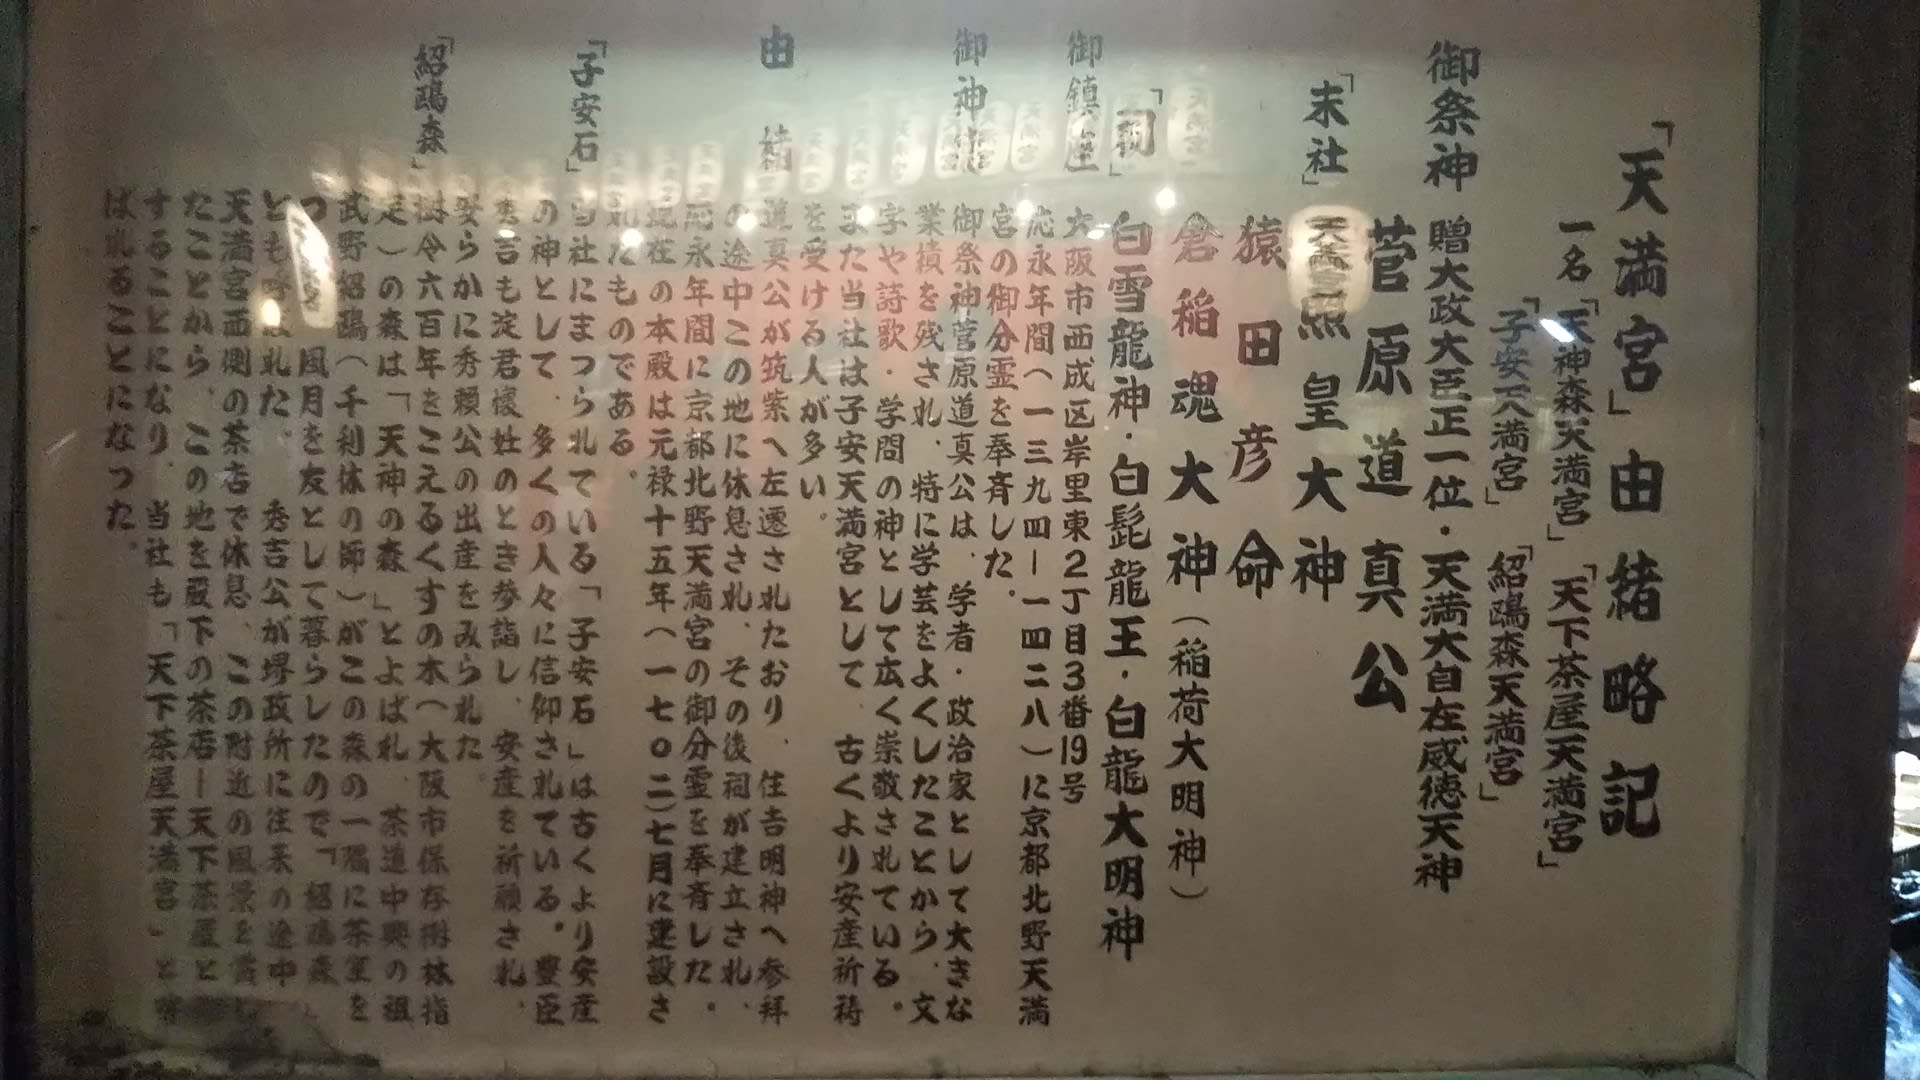 「天満宮」由緒略記
一名「天神森天満宮」「天下茶屋天満宮」
「子安天満宮」「紹鴎森天満宮」
御祭神 贈大政大臣正一位・天満大自在威徳天神
菅原道真公
「末社」 照皇大神
猿田彦命
倉稲魂大神(稲荷大明神)
「祠」白雪龍神・白髭龍王・白龍大明神
御鎮座 大阪市西成区岸里東2丁目3番19号
応永年間(一三九四ー一四二八)に京都北野天満
宮の御分霊を奉斉した。
御神 御祭神菅原道真公は、学者・政治家として大きな
業績を残され、特に学芸をよくしたことから、文
字や詩歌・学問の神として広く崇敬されている。
また当社は子安天満宮として、古くより安産祈祷
を受ける人が多い。
由緒 道真公が筑紫へ左遷されたおり、住吉明神へ参拜
の途中この地に休息され、その後祠が建立され、
応永年間に京都北野天満宮の御分霊を奉斉した。
現在の本殿は元禄十五年(一七〇二)七月に建設さ
れたものである。
「子安石」 当社にまつられている「子安石」は古くより安産
の神として、多くの人々に信仰されている。豊臣
秀吉も淀君懐妊のとき参詣し、安産を祈願され、
安らかに秀頼公の出産をみられた。
「紹鴎森」 樹令六百年をこえるくすの木(大阪市保存樹林指
定)の森は「天神の森」とよばれ、茶道中興の祖
武野紹鴎(千利休の師)がこの森の一隅に茶室を
つ 風月を友として暮らしたので「紹鴎森」
とも れた。 秀吉公が堺政所に往来の途中
天満宮西側の茶店で休息、この附近の風景を賞し
たことから、この地を殿下の茶店ー天下茶屋と
することになり、当社も「天下茶屋天満宮」と
ばれることになつた。